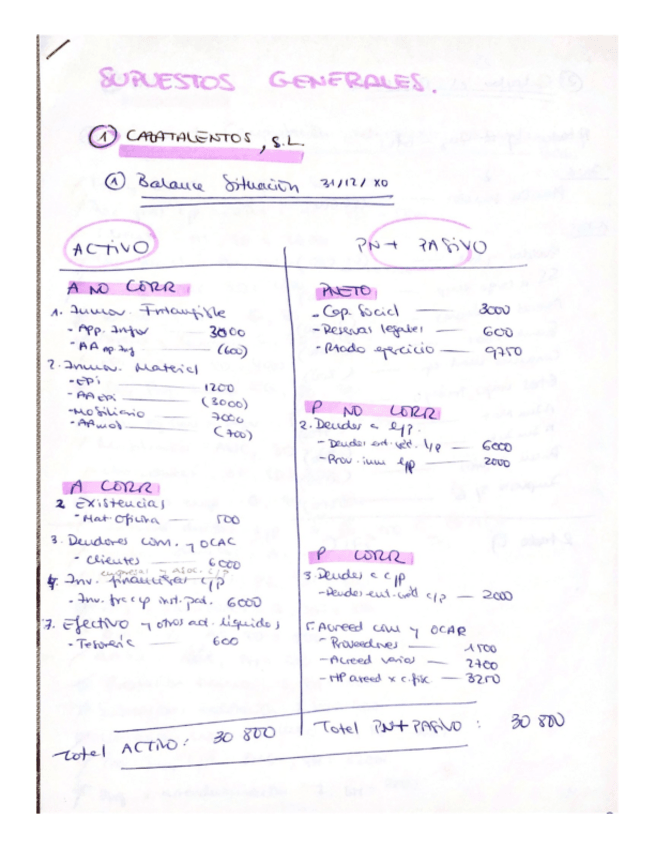 SUPUESTOS GENERALES.
① CAZATALENTOS, S.L.
① Balance Situación 31/12/X0
ACTIVO
A NO CORR
1. Inmov. Intangible
- App. Infor — 3000
- AA ap inf — (600)
2. Inmov. Material
- EPI — 1200
- AA EPI — (3000)
- Mobiliario — 7000
- AA mob — (700)
A CORR
2 Existencias
- Mat oficina — 500
3. Deudores com. y OCAC
- Clientes — 6000
empresas y asoc. c/p
4. Inv. financieras c/p
- Inv. fra c/p inst. pat. 6000
7. Efectivo y otros act. líquidos
- Tesorería — 600
Total ACTIVO: 30 800
PN + PASIVO
PNETO
- Cap. Social — 3000
- Reservas legales — 600
- Rtado ejercicio — 9750
P NO CORR
2. Deudas a l/p.
- Deudas ent. créd. l/p — 6000
- Prov. inm l/p — 2000
P CORR
3. Deudas a c/p
- Deudas ent. créd c/p — 2000
5. Acreed com y OCAP
- Proveedores — 1500
- Acreed varios — 2700
- HP acreed x c. fisc — 3250
Total PN + PASIVO: 30 800